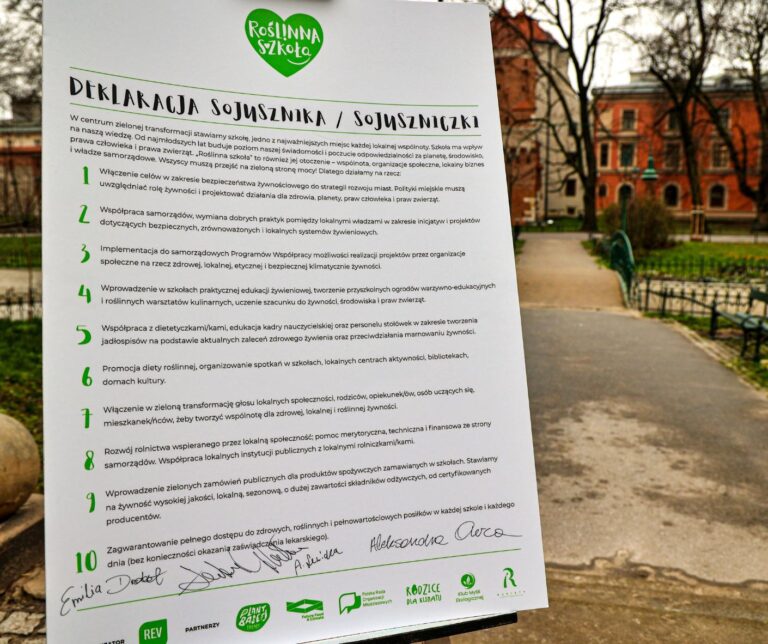 ROŚLINNA
SZKOŁA
DEKLARACJA SOJUSZNIKA / SOJUSZNICZKI
W centrum zielonej transformacji stawiamy szkołę, jedno z najważniejszych miejsc każdej lokalnej wspólnoty. Szkoła ma wpływ
na naszą wiedzę. Od najmłodszych lat buduje poziom naszej świadomości i poczucie odpowiedzialności za planetę, środowisko,
prawa człowieka i prawa zwierząt. „Roślinna szkoła” to również jej otoczenie – wspólnota, organizacje społeczne, lokalny biznes
i władze samorządowe. Wszyscy muszą przejść na zieloną stronę mocy! Dlatego działamy na rzecz:
1 Włączenie celów w zakresie bezpieczeństwa żywnościowego do strategii rozwoju miast. Polityki miejskie muszą
uwzględniać rolę żywności i projektować działania dla zdrowia, planety, praw człowieka i praw zwierząt.
2 Współpraca samorządów, wymiana dobrych praktyk pomiędzy lokalnymi władzami w zakresie inicjatyw i projektów
dotyczących bezpiecznych, zrównoważonych i lokalnych systemów żywieniowych.
3 Implementacja do samorządowych Programów Współpracy możliwości realizacji projektów przez organizacje
społeczne na rzecz zdrowej, lokalnej, etycznej i bezpiecznej klimatycznie żywności.
4 Wprowadzenie w szkołach praktycznej edukacji żywieniowej, tworzenie przyszkolnych ogrodów warzywno-edukacyjnych
i roślinnych warsztatów kulinarnych, uczenie szacunku do żywności, środowiska i praw zwierząt.
5 Współpraca z dietetyczkami/kami, edukacja kadry nauczycielskiej oraz personelu stołówek w zakresie tworzenia
jadłospisów na podstawie aktualnych zaleceń zdrowego żywienia oraz przeciwdziałania marnowaniu żywności.
6 Promocja diety roślinnej, organizowanie spotkań w szkołach, lokalnych centrach aktywności, bibliotekach,
domach kultury.
7 Włączenie w zieloną transformację głosu lokalnych społeczności, rodziców, opiekunek/ów, osób uczących się,
mieszkanek/ńców, żeby tworzyć wspólnotę dla zdrowej, lokalnej i roślinnej żywności.
8 Rozwój rolnictwa wspieranego przez lokalną społeczność; pomoc merytoryczna, techniczna i finansowa ze strony
samorządów. Współpraca lokalnych instytucji publicznych z lokalnymi rolniczkami/kami.
9 Wprowadzenie zielonych zamówień publicznych dla produktów spożywczych zamawianych w szkołach. Stawiamy
na żywność wysokiej jakości, lokalną, sezonową, o dużej zawartości składników odżywczych, od certyfikowanych
producentów.
10 Zagwarantowanie pełnego dostępu do zdrowych, roślinnych i pełnowartościowych posiłków w każdej szkole i każdego
dnia (bez konieczności okazania zaświadczenia lekarskiego).
Emilia Aleksandra
REV PARTNERZY PLANT BASED Future Food 4 Climate Polska Rada Organizacji Młodzieżowych RODZICE DLA KLIMATU Klub Myśli Ekologicznej